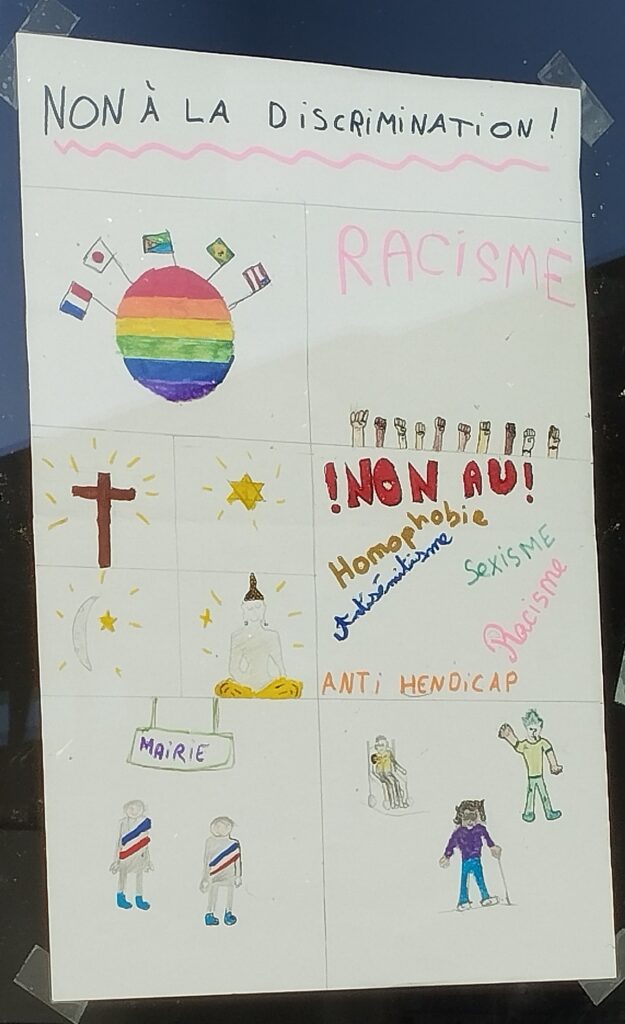 NON À LA DISCRIMINATION !
RACISME
!NON AU!
Homophobie
Antisémitisme
Sexisme
Racisme
ANTI HENDICAP
MAIRIE